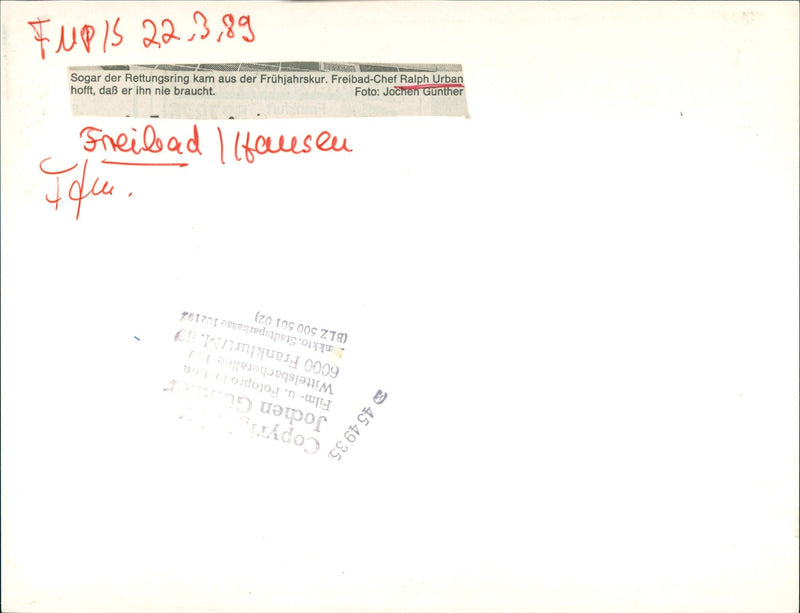 FNP/S 22.3.89
Sogar der Rettungsring kam aus der Frühjahrskur. Freibad-Chef Ralph Urban
hofft, daß er ihn nie braucht. Foto: Jochen Günther
Freibad / Hausen
Copyright
Jochen Günther
Film- u. Fotoproduktion
Wittelsbacherallee
6000 Frankfurt/M. 60
Bankkto. Stadtsparkasse
(BLZ 500 501 02)
454935